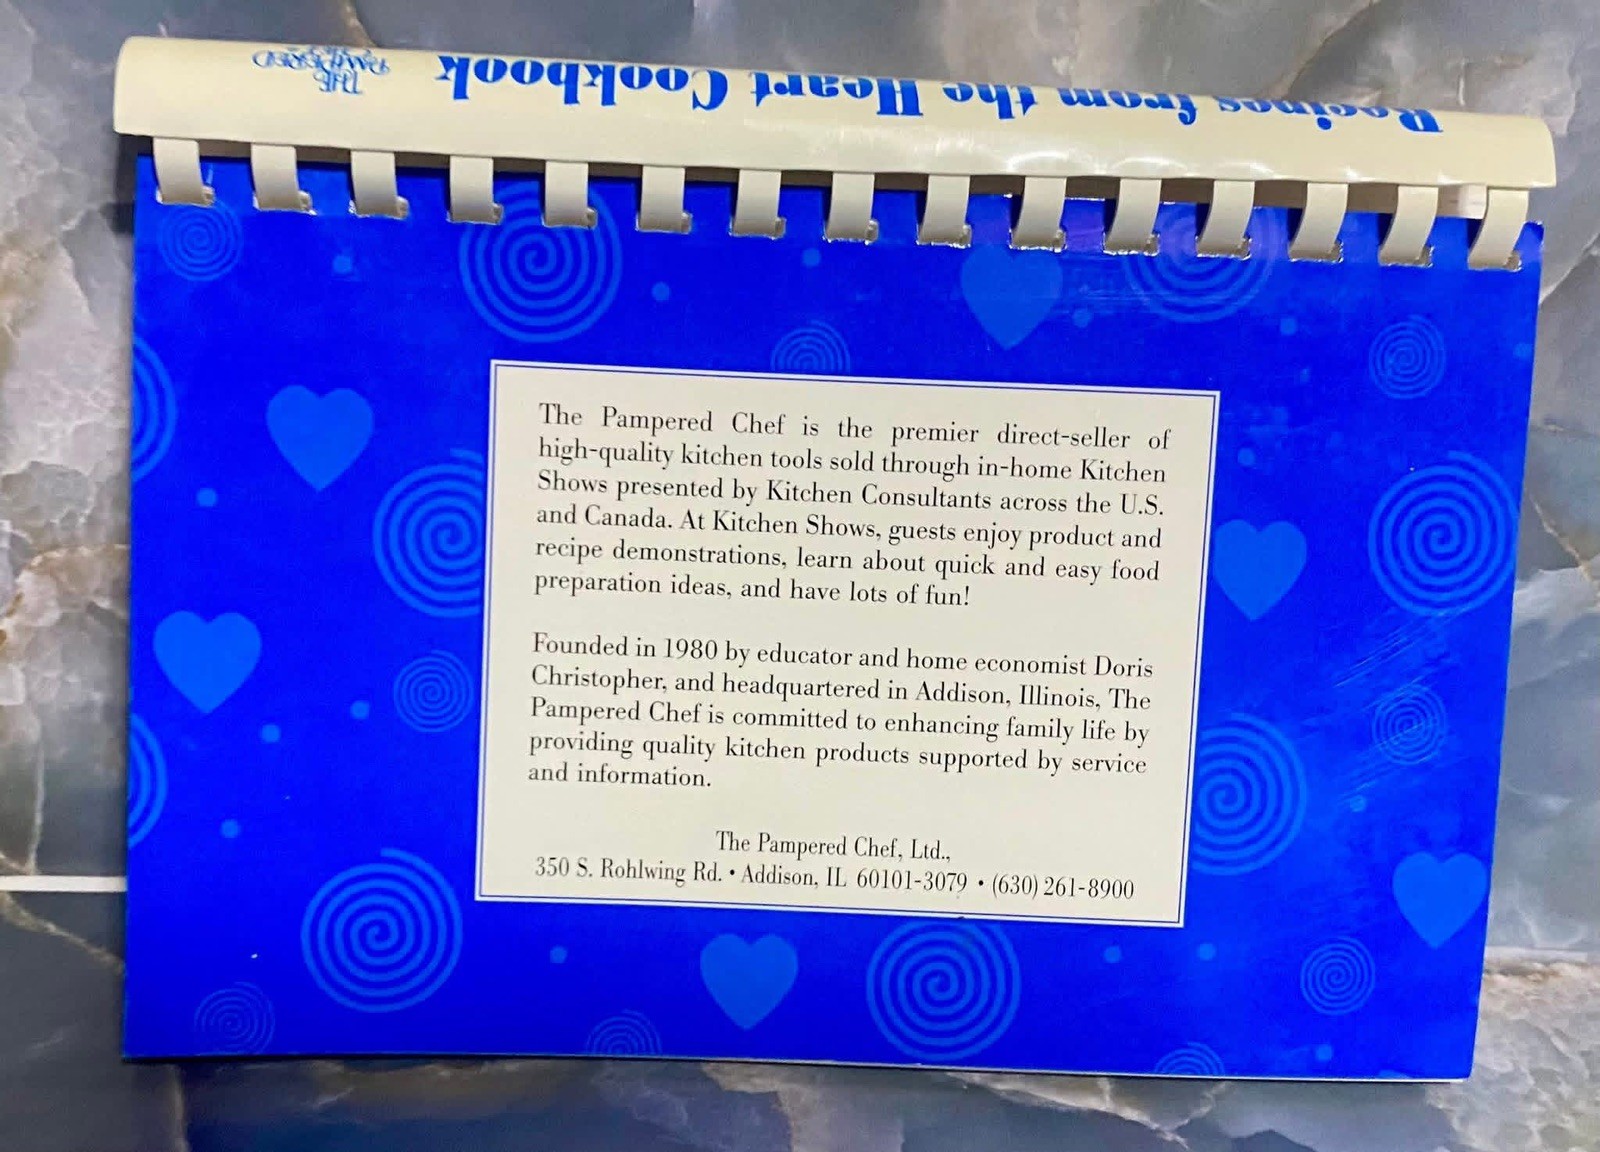 Recipes from the Heart Cookbook
THE
PAMPERED
CHEF
The Pampered Chef is the premier direct-seller of
high-quality kitchen tools sold through in-home Kitchen
Shows presented by Kitchen Consultants across the U.S.
and Canada. At Kitchen Shows, guests enjoy product and
recipe demonstrations, learn about quick and easy food
preparation ideas, and have lots of fun!
Founded in 1980 by educator and home economist Doris
Christopher, and headquartered in Addison, Illinois, The
Pampered Chef is committed to enhancing family life by
providing quality kitchen products supported by service
and information.
The Pampered Chef, Ltd.,
350 S. Rohlwing Rd. • Addison, IL 60101-3079 • (630) 261-8900